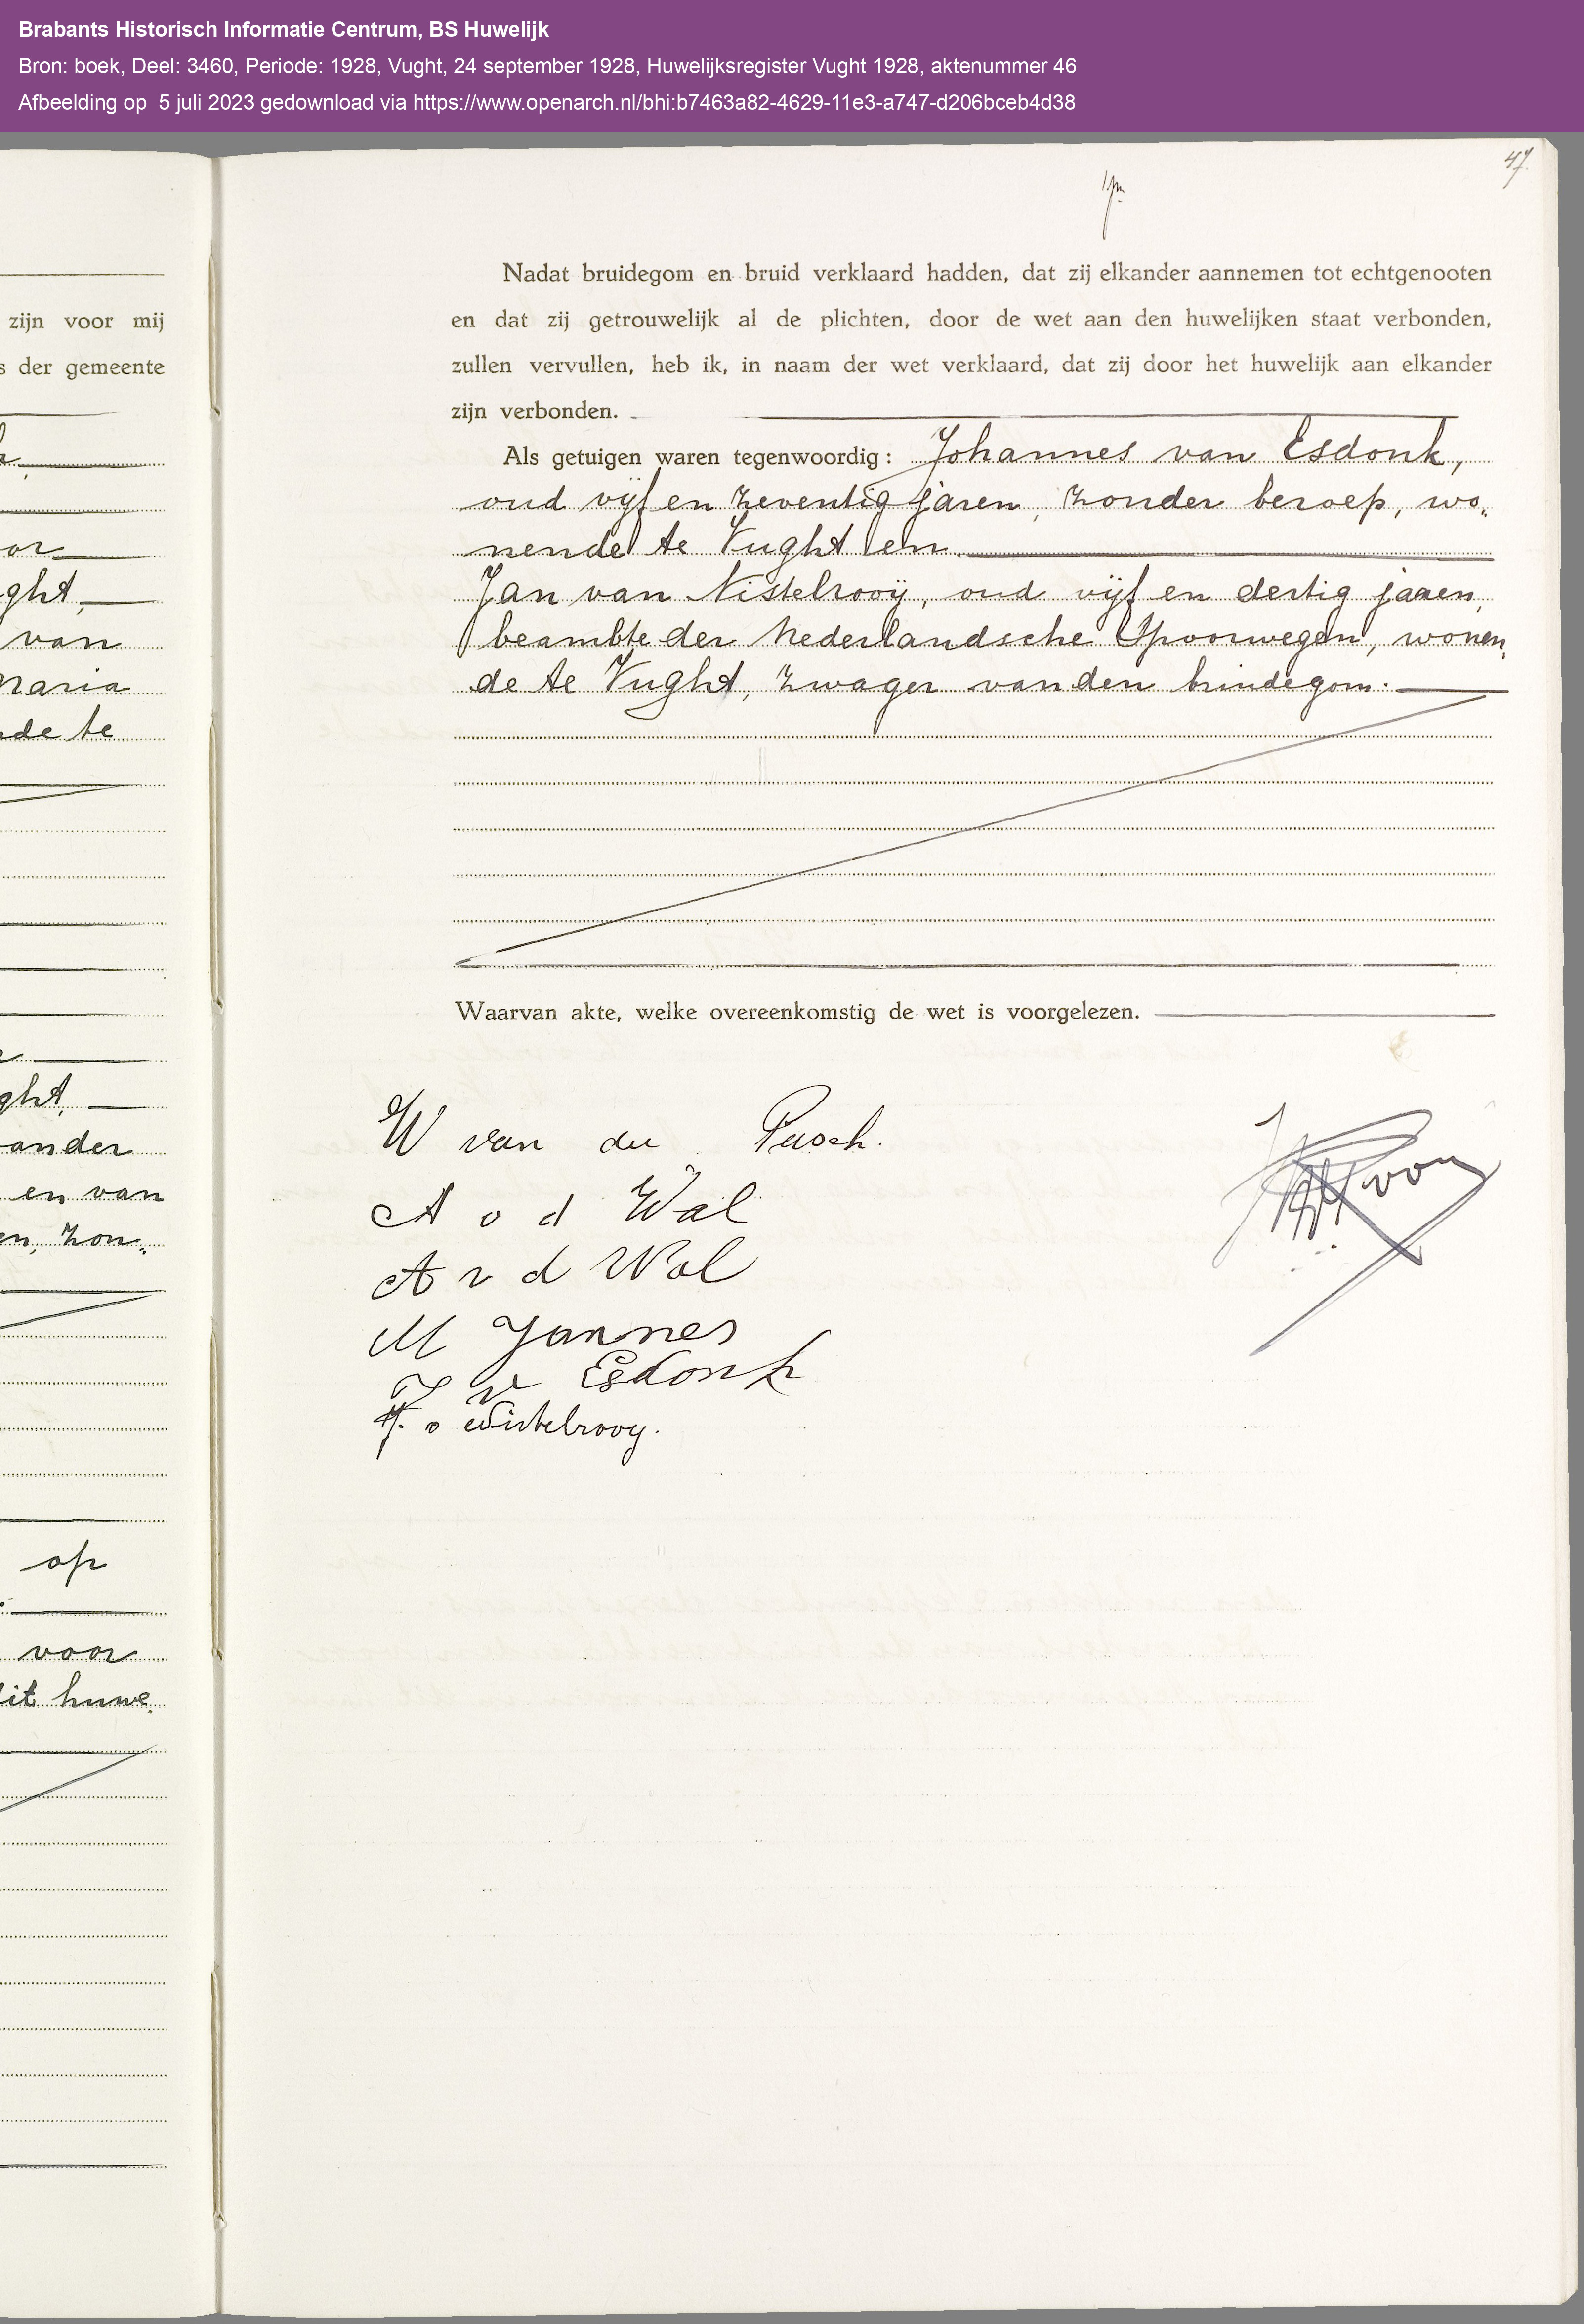 Brabants Historisch Informatie Centrum, BS Huwelijk
Bron: boek, Deel: 3460, Periode: 1928, Vught, 24 september 1928, Huwelijksregister Vught 1928, aktenummer 46
Afbeelding op 5 juli 2023 gedownload via https://www.openarch.nl/bhi:b7463a82-4629-11e3-a747-d206bceb4d38
zijn voor mij
der gemeente
van
Maria
te
ander
en van
zon„
op
voor
dit huwe„
47.
Nadat bruidegom en bruid verklaard hadden, dat zij elkander aannemen tot echtgenooten
en dat zij getrouwelijk al de plichten, door de wet aan den huwelijken staat verbonden,
zullen vervullen, heb ik, in naam der wet verklaard, dat zij door het huwelijk aan elkander
zijn verbonden.
Als getuigen waren tegenwoordig: Johannes van Esdonk,
oud vijf en zeventig jaren, zonder beroep, wo„
nende te Vught en
Jan van Nistelrooij, oud vijf en dertig jaren,
beambte der Nederlandsche Spoorwegen, wonen„
de te Vught, zwager van den bruidegom.
Waarvan akte, welke overeenkomstig de wet is voorgelezen.
W van der Pasch.
A v d Wal
A v d Wal
M Jannes
J v Esdonk
J. v Nistelrooy.